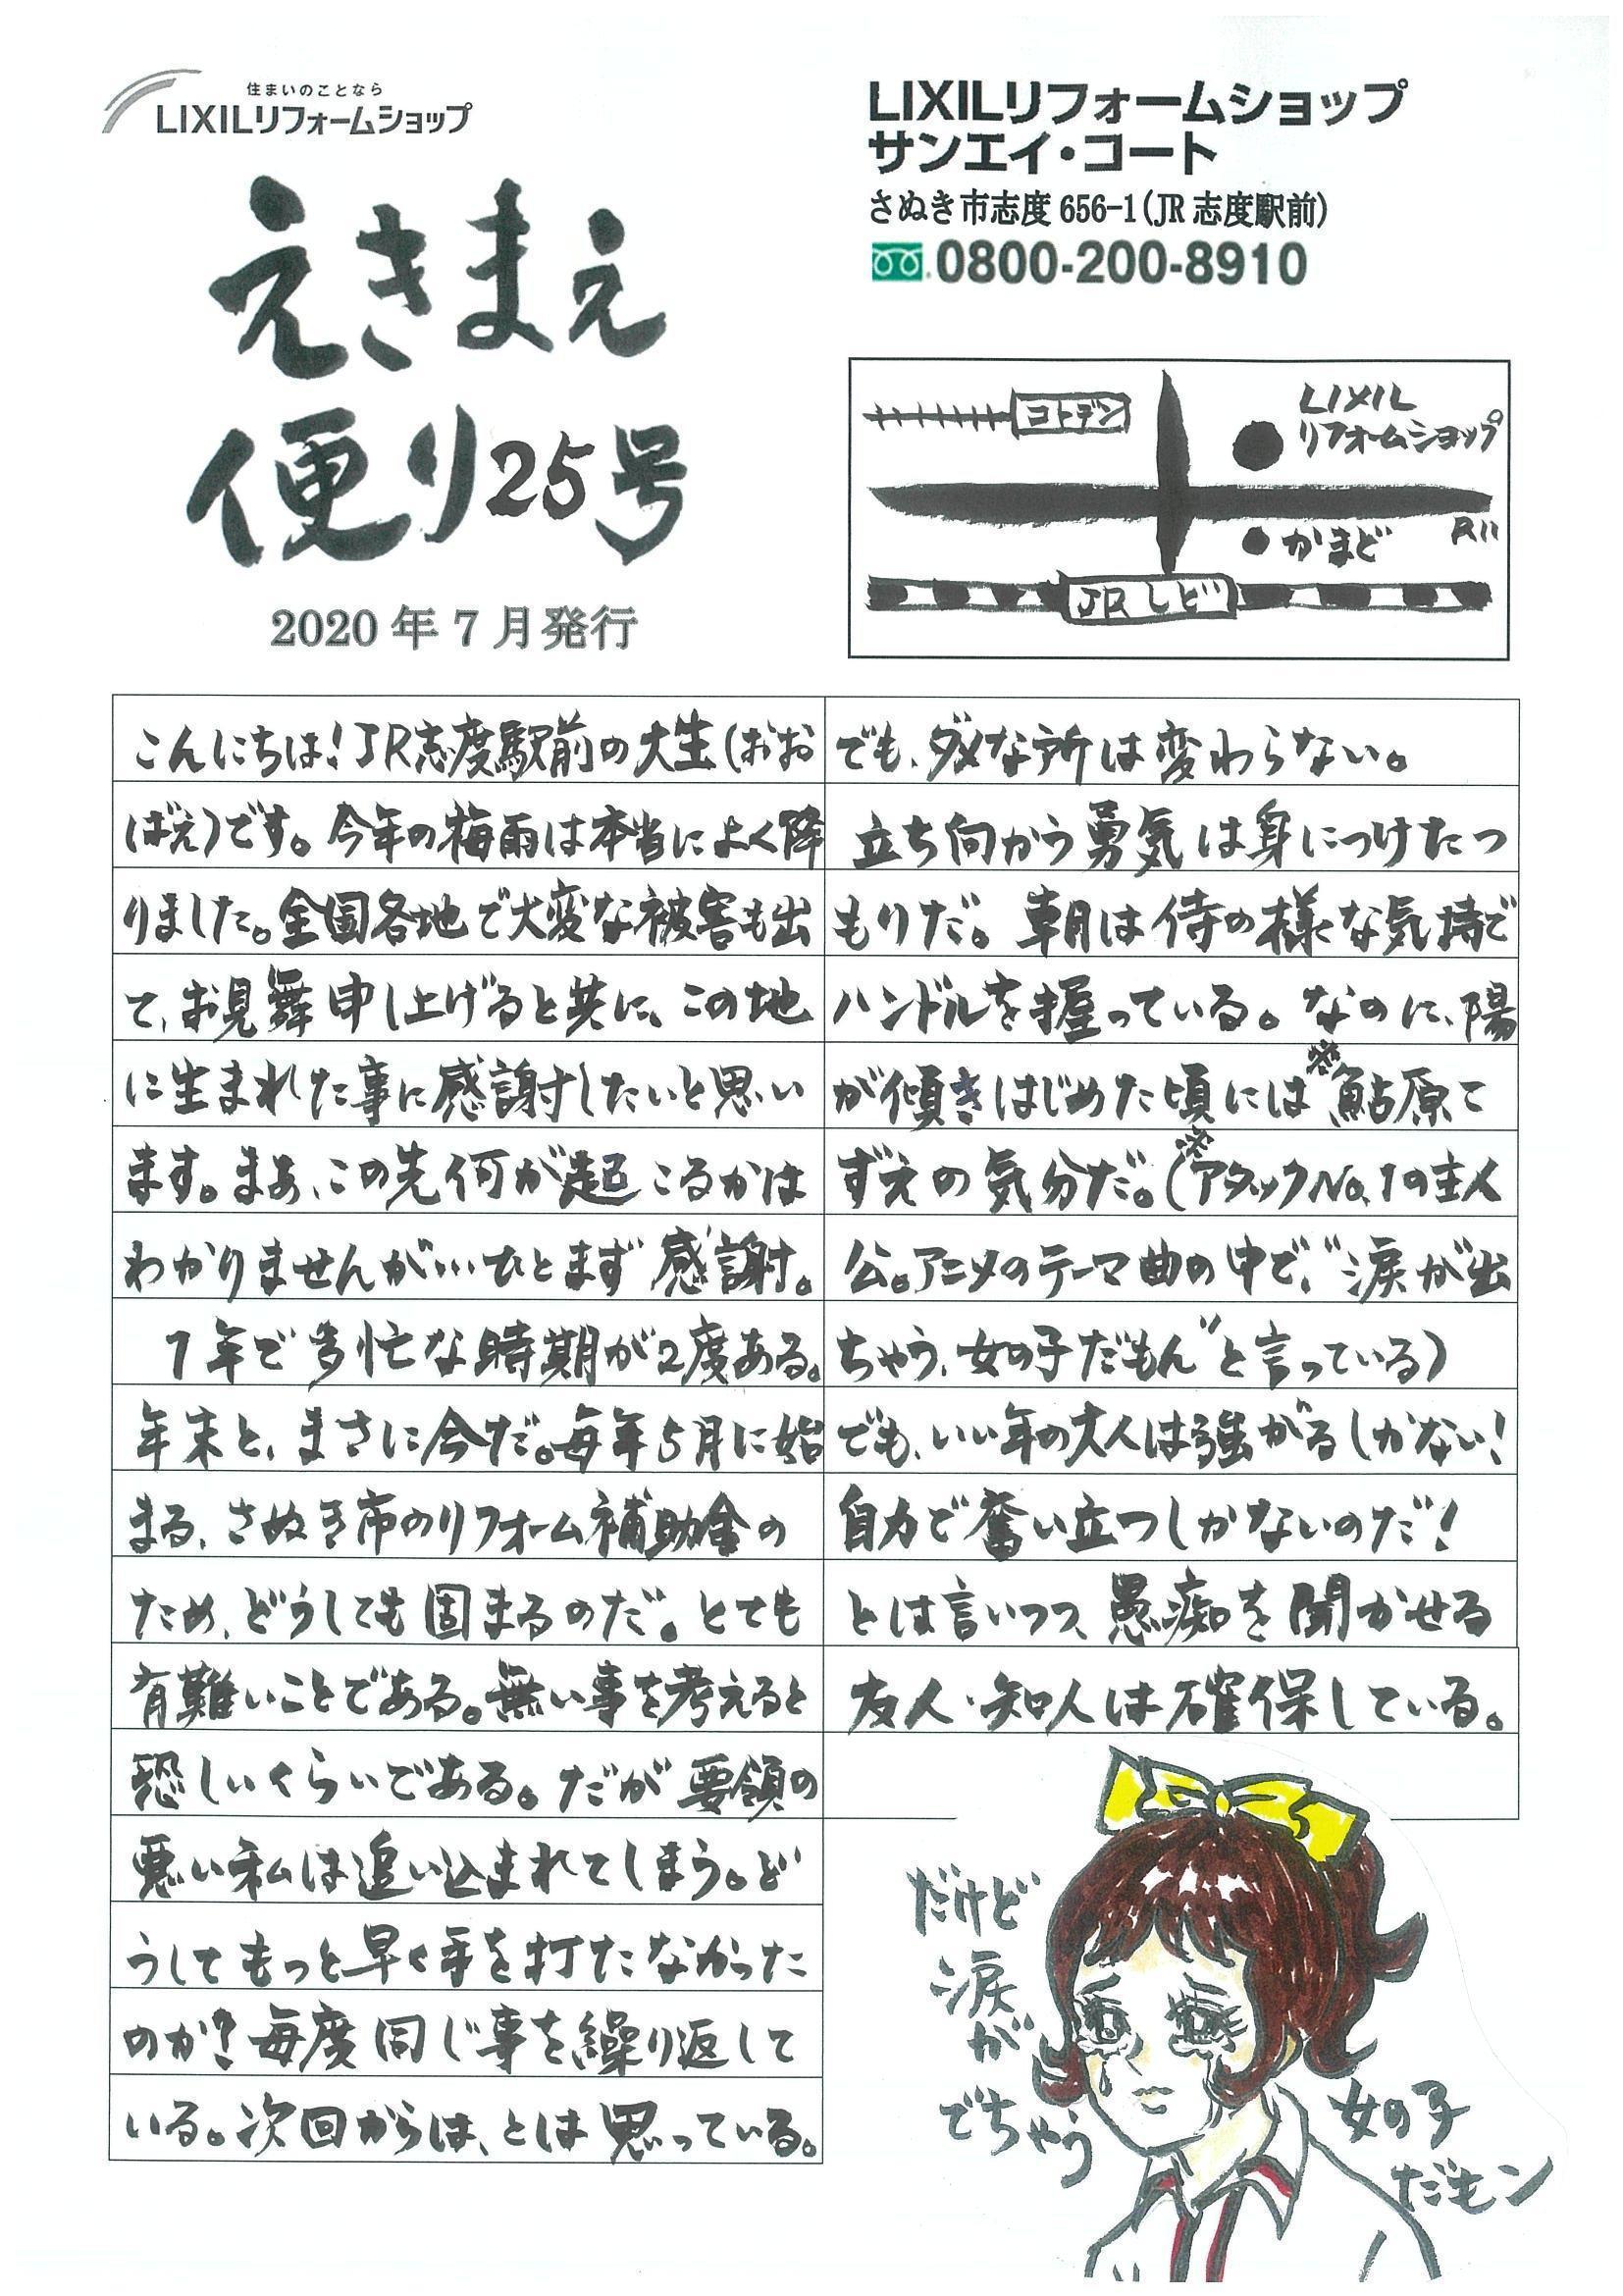 住まいのことなら
LIXILリフォームショップ
えきまえ
便り25号
2020年7月発行
LIXILリフォームショップ
サンエイ・コート
さぬき市志度656-1(JR志度駅前)
0800-200-8910
コトデン
LIXIL
リフォームショップ
かまど
R11
JRしど
こんにちは!JR志度駅前の大生(おお
ばえ)です。今年の梅雨は本当によく降
りました。全国各地で大変な被害も出
て、お見舞申し上げると共に、この地
に生まれた事に感謝したいと思い
ます。まあ、この先何が起こるかは
わかりませんが…ひとまず感謝。
1年で多忙な時期が2度ある。
年末と、まさに今だ。毎年5月に始
まる、さぬき市のリフォーム補助金の
ため、どうしても固まるのだ。とても
有難いことである。無い事を考えると
恐しいくらいである。だが要領の
悪い私は追い込まれてしまう。ど
うしてもっと早く手を打たなかった
のか?毎度同じ事を繰り返して
いる。次回からは、とは思っている。
でも、ダメな所は変わらない。
立ち向かう勇気は身につけたつ
もりだ。朝は侍の様な気持で
ハンドルを握っている。なのに、陽
が傾きはじめた頃には※鮎原こ
ずえの気分だ。(※アタックNo.1の主人
公。アニメのテーマ曲の中で、"涙が出
ちゃう、女の子だもん"と言っている)
でも、いい年の大人は強がるしかない!
自力で奮い立つしかないのだ!
とは言いつつ、愚痴を聞かせる
友人・知人は確保している。
だけど
涙
が
でちゃう
女の子
だモン